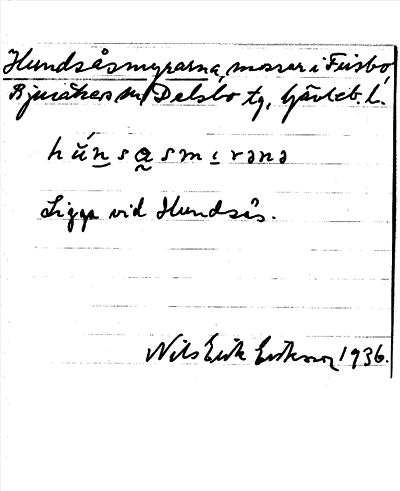 Hundsåsmyrarna, mossar i Frisbo,
Bjuråkers sn, Delsbo tg, Gävleb. l.
hŭ́nsasmɩrənə
Ligga vid Hundsås.
Nils Erik Eriksson 1936.